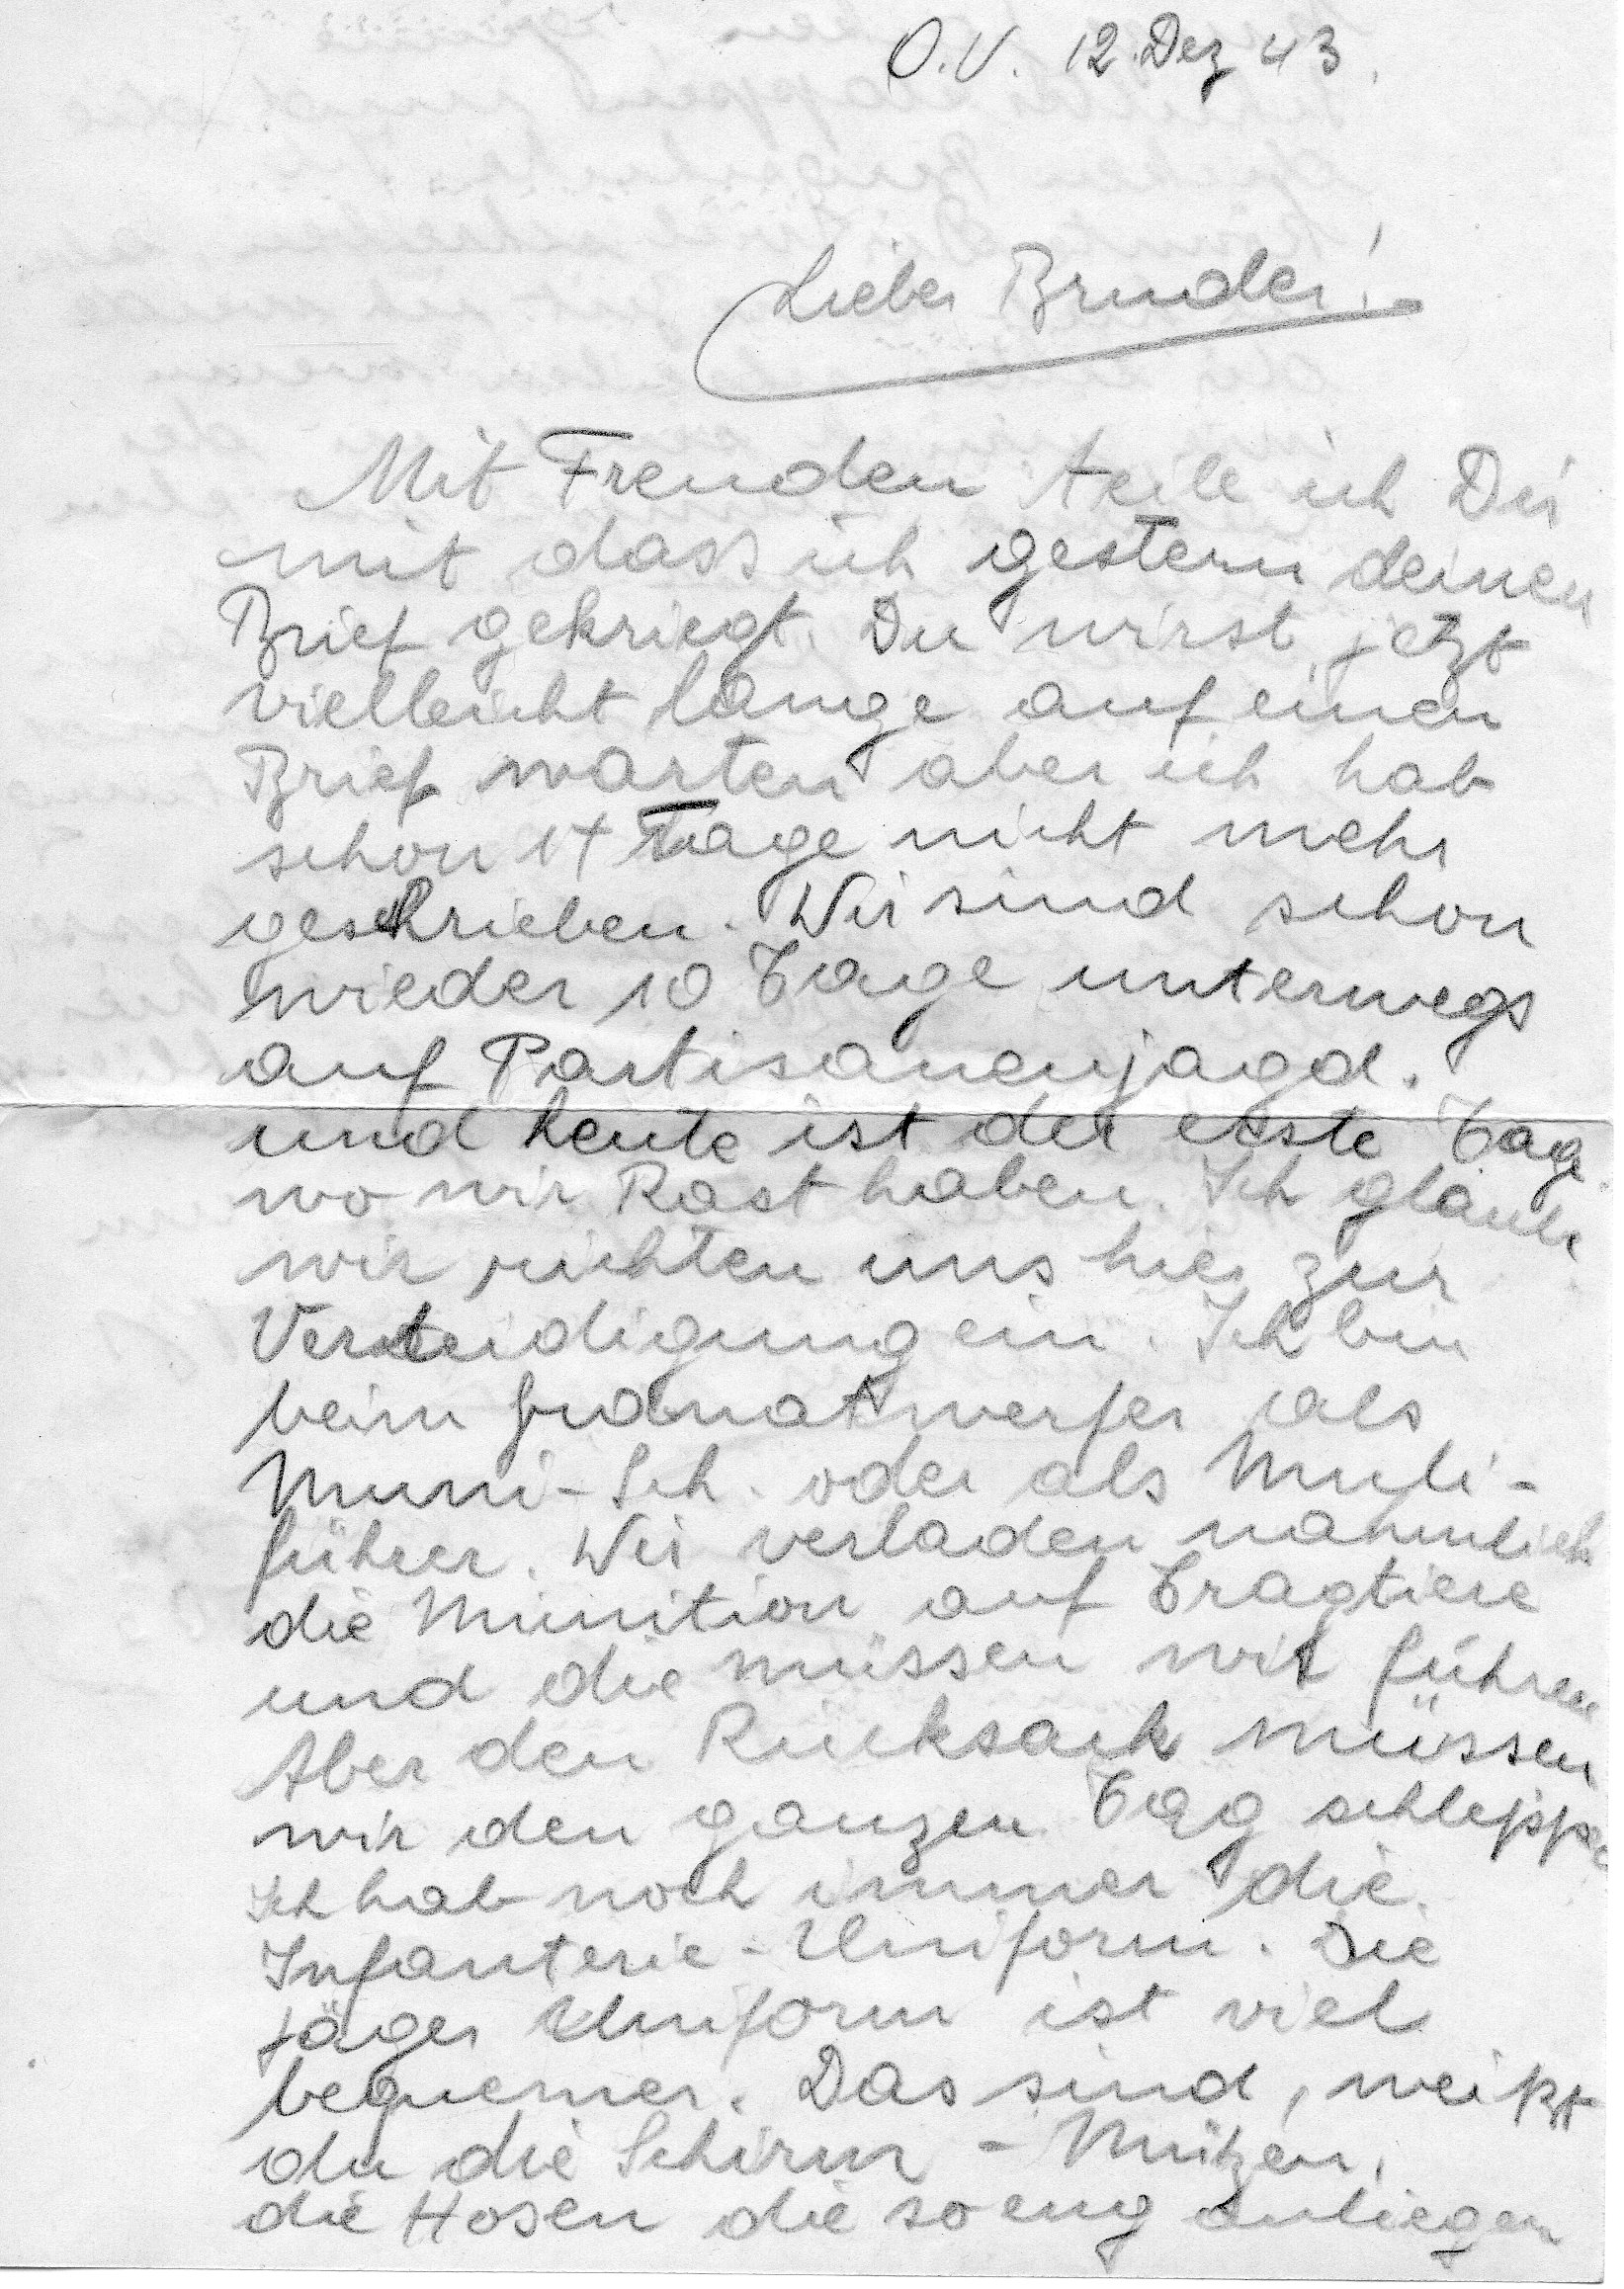 O.V. 12. Dez 43.
Lieber Bruder!
Mit Freuden teile ich Dir
mit dass ich gestern deinen
Brief gekriegt. Du wirst jetzt
vielleicht lange auf einen
Brief warten aber ich hab
schon 14 Tage nicht mehr
geschrieben. Wir sind schon
wieder 10 Tage unterwegs
auf Partisanenjagd.
und heute ist der erste Tag
wo wir Rast haben. Ich glaube
wir richten uns hier zur
Verteidigung ein. Ich bin
beim Granatwerfer als
Muni-Sch. oder als Muli-
führer. Wir verladen nämmlich
die Munition auf Tragtiere
und die müssen wir führen
Aber den Rucksack müssen
wir den ganzen Tag schleppen
Ich hab noch immer die
Infanterie-Uniform. Die
Jäger Uniform ist viel
bequemer. Das sind, weißt
du die Schirm-Mützen,
die Hosen die so eng anliegen